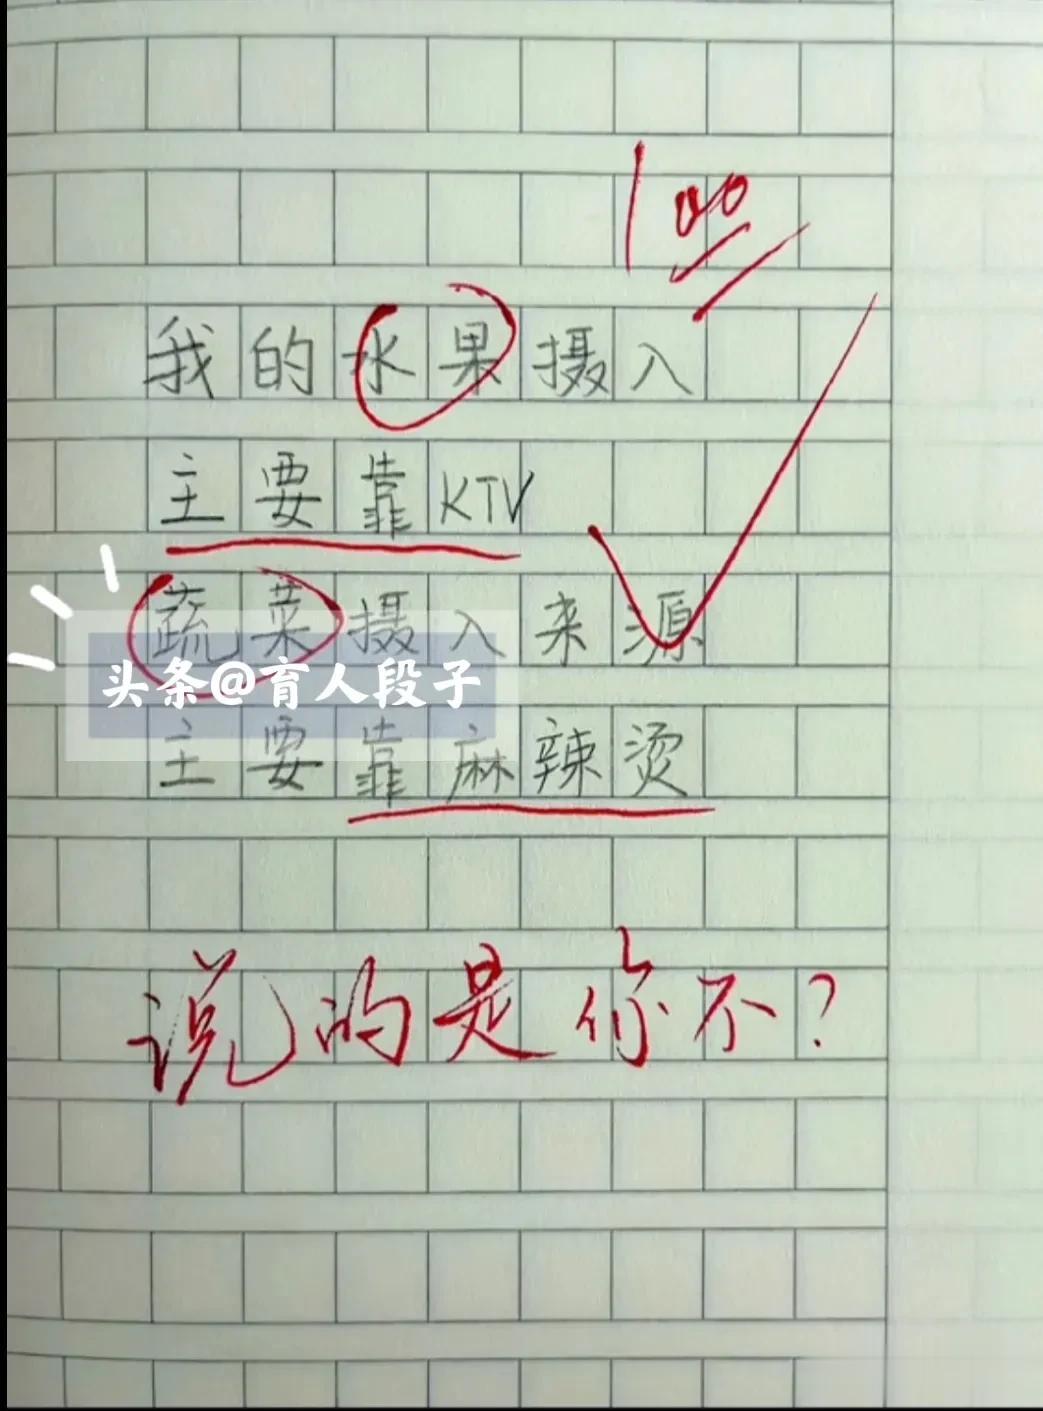 100
我的水果摄入
主要靠KTV
蔬菜摄入来源
头条@育人段子
主要靠麻辣烫
说的是你不?